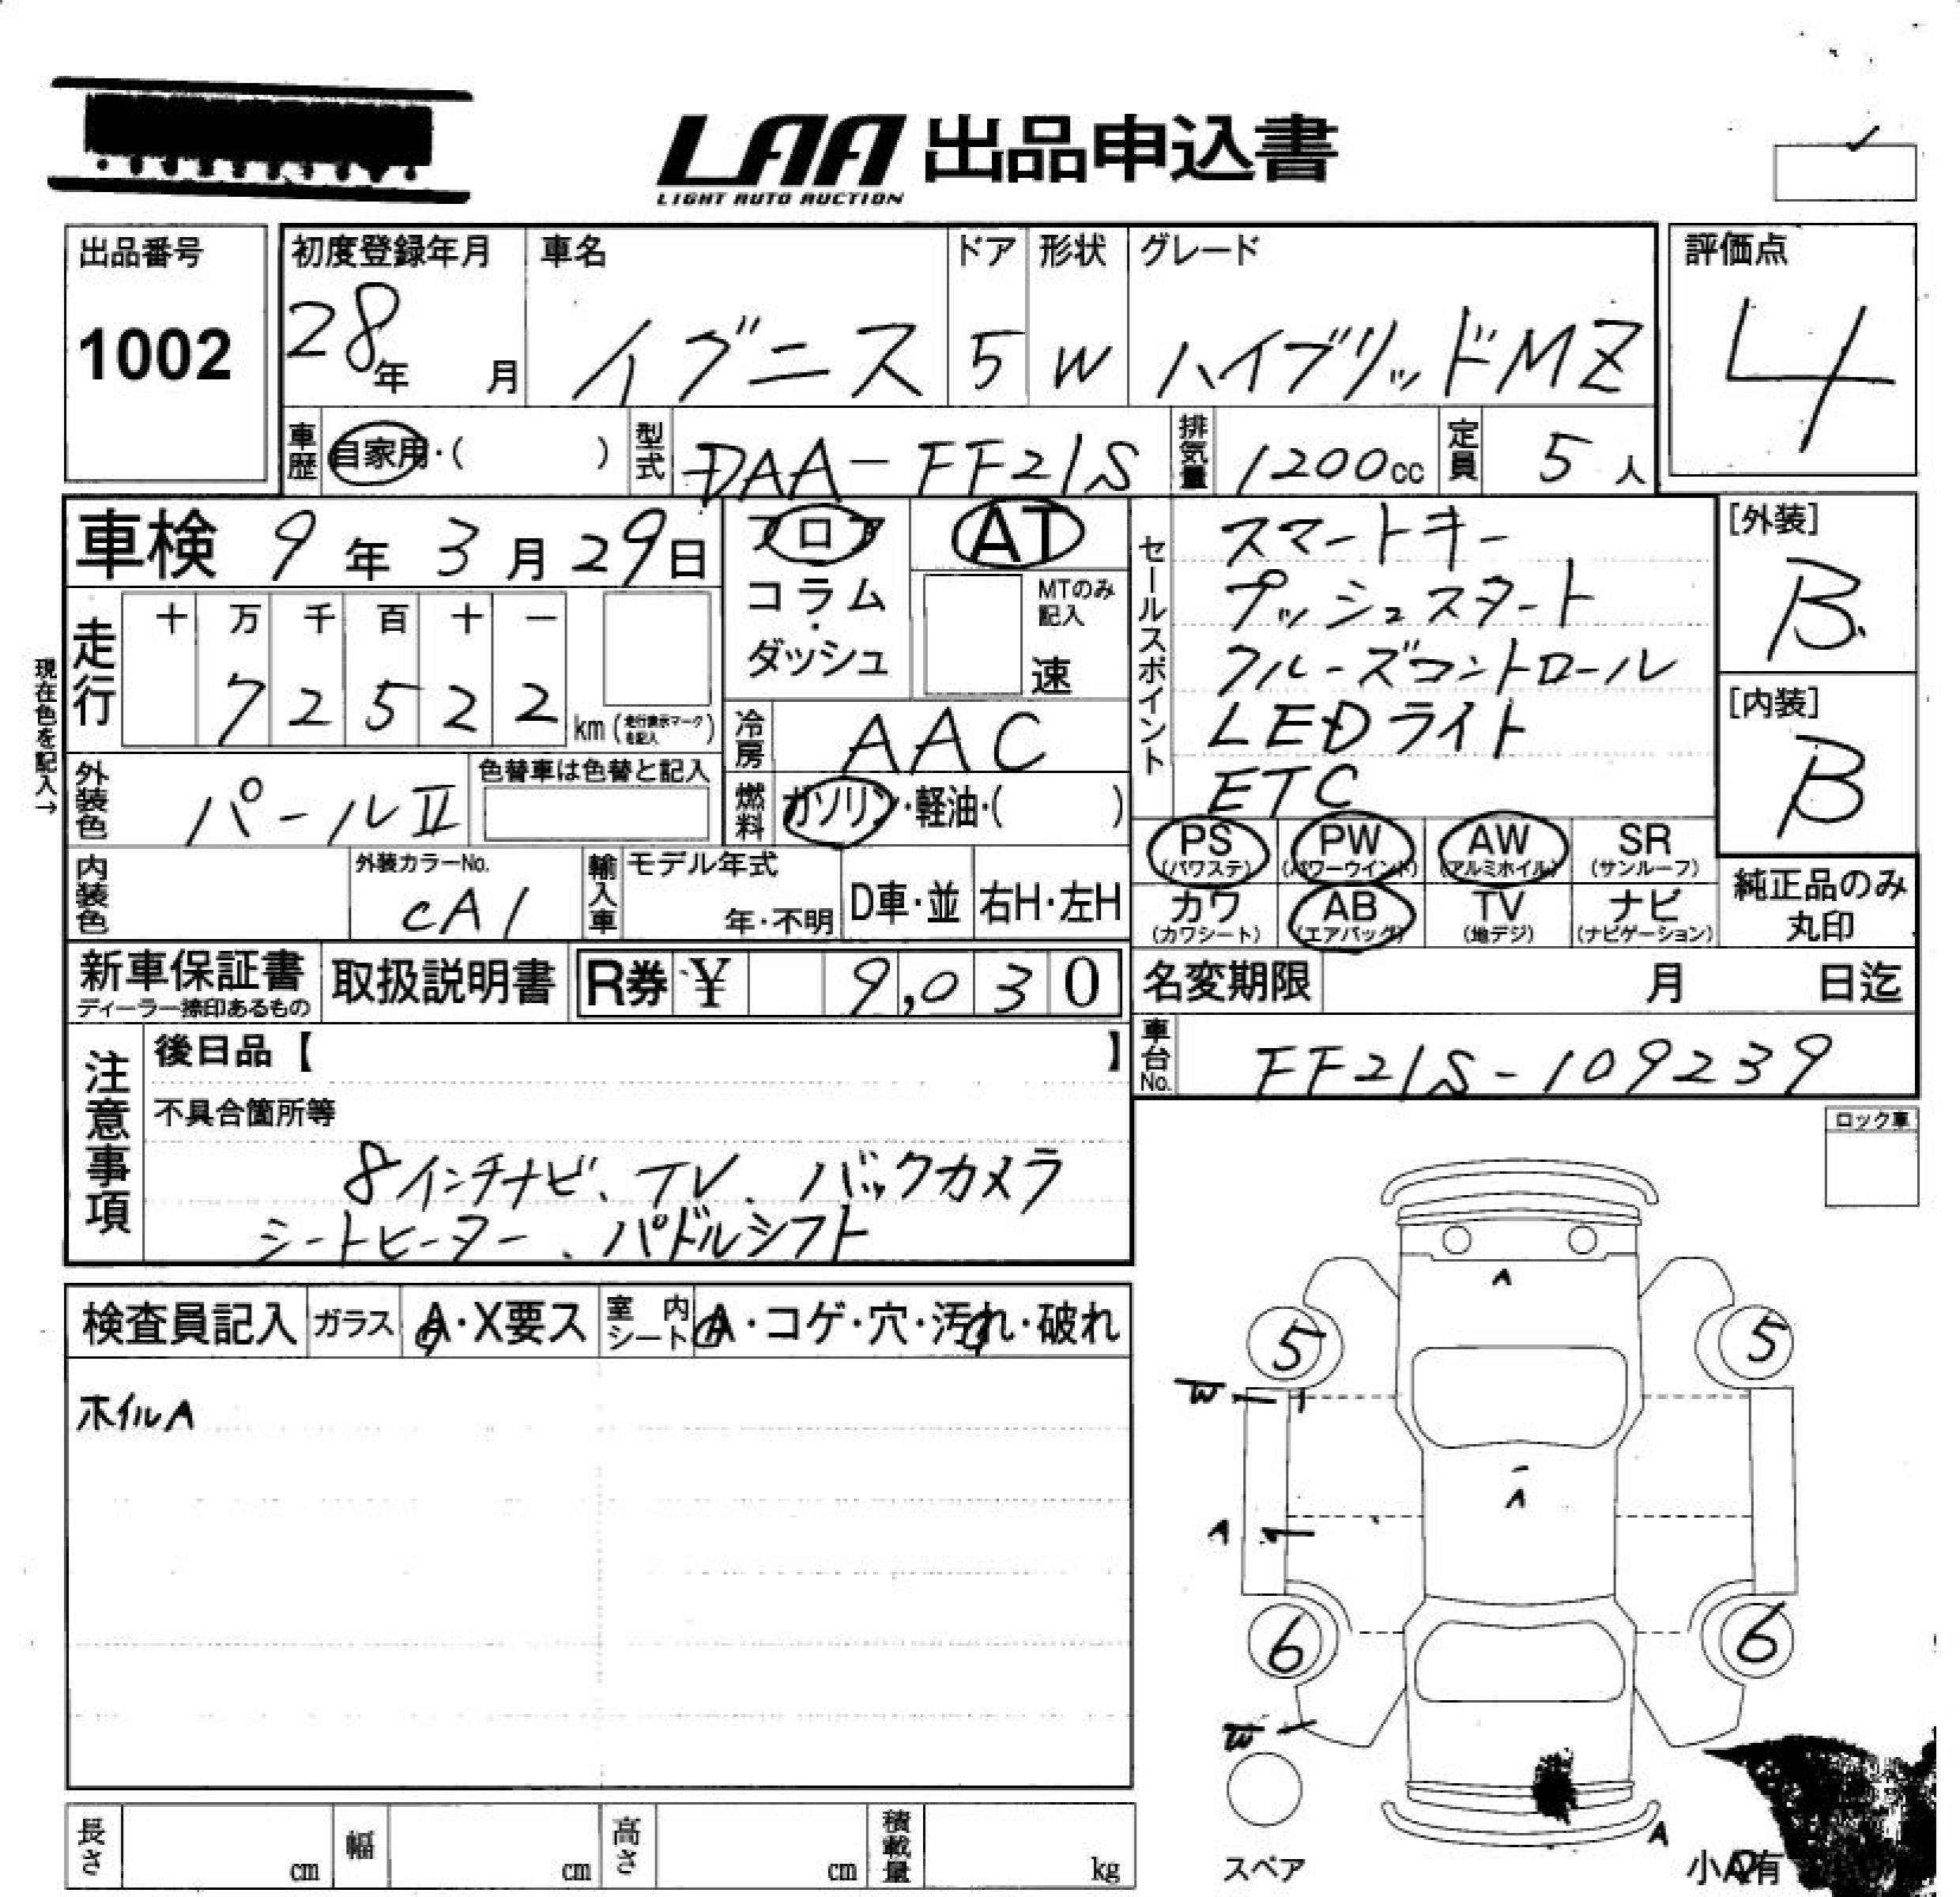 LAA 出品申込書
LIGHT AUTO AUCTION
出品番号
1002
初度登録年月 車名 ドア 形状 グレード
28年 月 イグニス 5 W ハイブリッドMZ
評価点
4
車歴 自家用・( ) 型式 DAA-FF21S 排気量 1200cc 定員 5人
車検 9年 3月 29日
フロア
コラム
・
ダッシュ
AT
MTのみ
記入
速
セールスポイント
スマートキー
プッシュスタート
クルーズコントロール
LEDライト
ETC
[外装]
B
[内装]
B
現在色を記入→
走行
十 万 千 百 十 一
7 2 5 2 2 km(走行表示マークを記入)
冷房 AAC
外装色 パールⅡ 色替車は色替と記入
燃料 ガソリン・軽油・( )
PS PW AW SR
(パワステ) (パワーウインド) (アルミホイル) (サンルーフ)
カワ AB TV ナビ
(カワシート) (エアバッグ) (地デジ) (ナビゲーション)
純正品のみ
丸印
内装色 外装カラーNo. CA1 輸入車 モデル年式 年・不明 D車・並 右H・左H
新車保証書 取扱説明書 R券 ¥ 9,030
ディーラー捺印あるもの
名変期限 月 日迄
車台No. FF21S-109239
注意事項
後日品【 】
不具合箇所等
8インチナビ、TV、バックカメラ
シートヒーター、パドルシフト
ロック車
検査員記入 ガラス A・X要ス 室内シート A・コゲ・穴・汚れ・破れ
ホイルA
A
5 5
W
A
A
6 6
W
A
スペア
小A有
長さ cm 幅 cm 高さ cm 積載量 kg